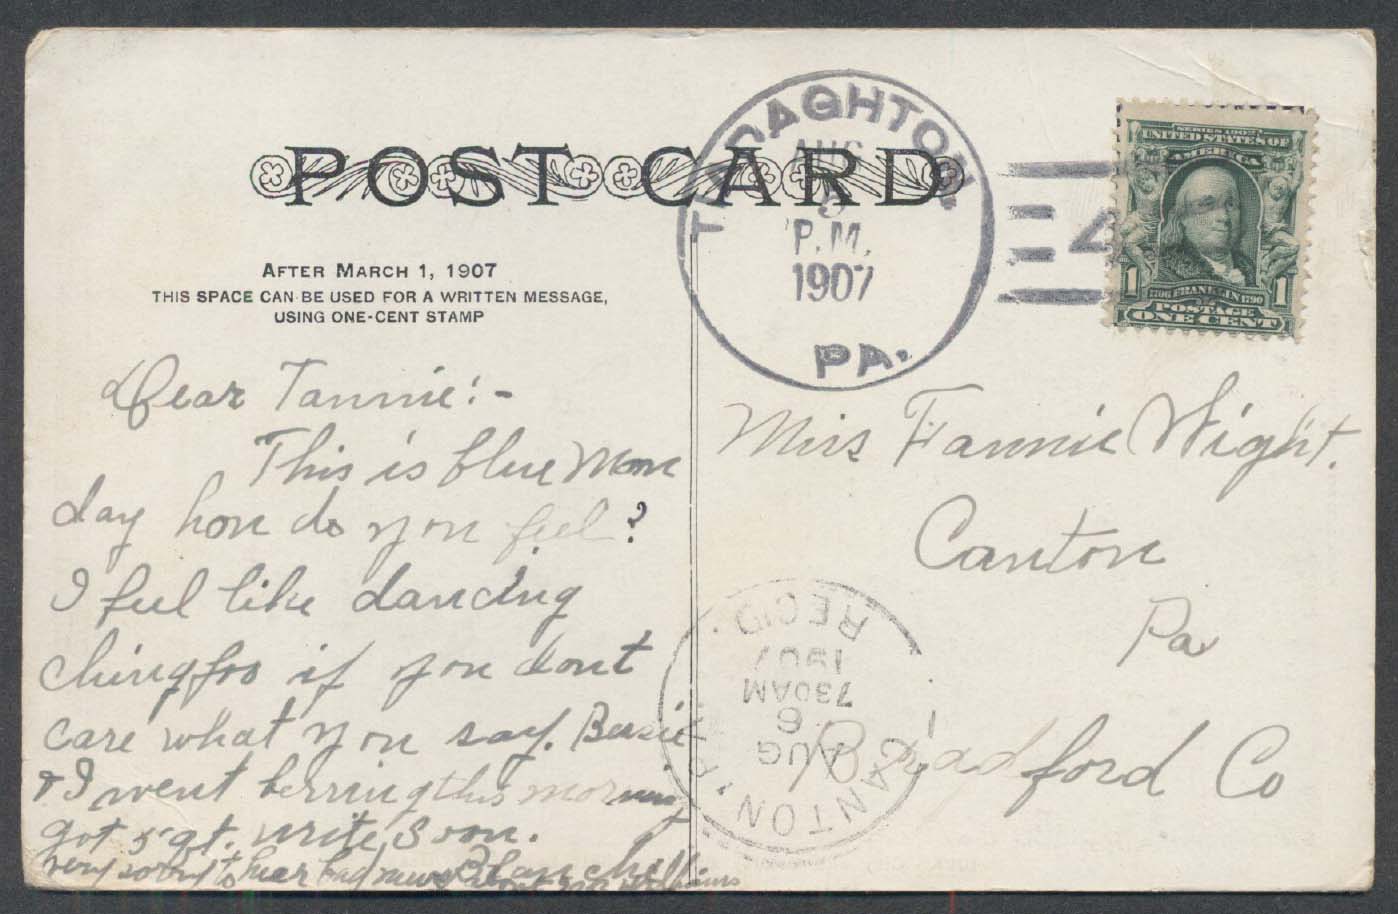 POST CARD
AFTER MARCH 1, 1907
THIS SPACE CAN BE USED FOR A WRITTEN MESSAGE,
USING ONE-CENT STAMP
AUG
5
P.M.
1907
PA.
4
SERIES 1902
UNITED STATES OF
AMERICA
1706 FRANKLIN 1790
1 1
POSTAGE
ONE CENT
Dear Fannie:-
This is blue Mon
day how do you feel?
I feel like dancing
chingfoo if you dont
care what you say. Bessie
& I went berrying this morning
got 5 qt. write soon.
very sorry to hear bad news
Blanche
Miss Fannie Wight.
Canton
Pa
Bradford Co
CANTON, PA.
AUG
6
730AM
1907
REC'D.